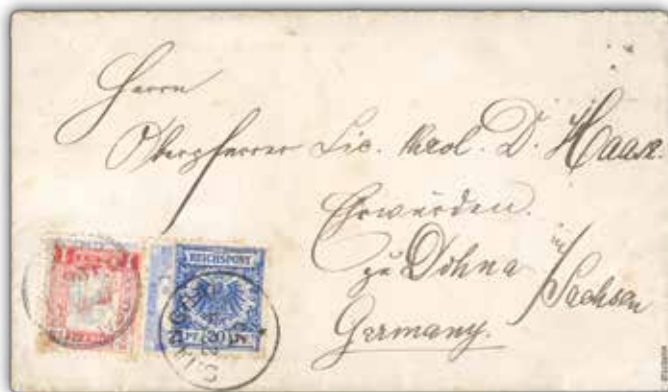 Herrn
Oberpfarrer Lic. theol. D. Haase.
Ehrwürden.
zu Dohna in/Sachsen
Germany.
REICHSPOST
20 PF